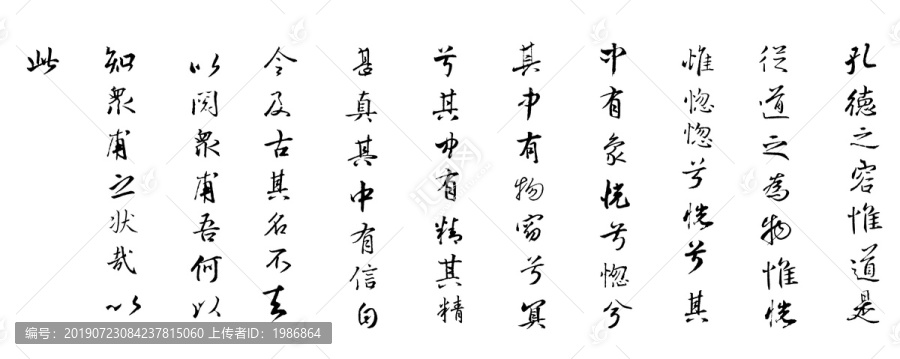 孔德之容惟道是
從道之為物惟恍
惟惚惚兮恍兮其
中有象恍兮惚兮
其中有物窈兮冥
兮其中有精其精
甚真其中有信自
今及古其名不去
以閱衆甫吾何以
知衆甫之状哉以
此
编号：20190723084237815060 上传者ID：1986864